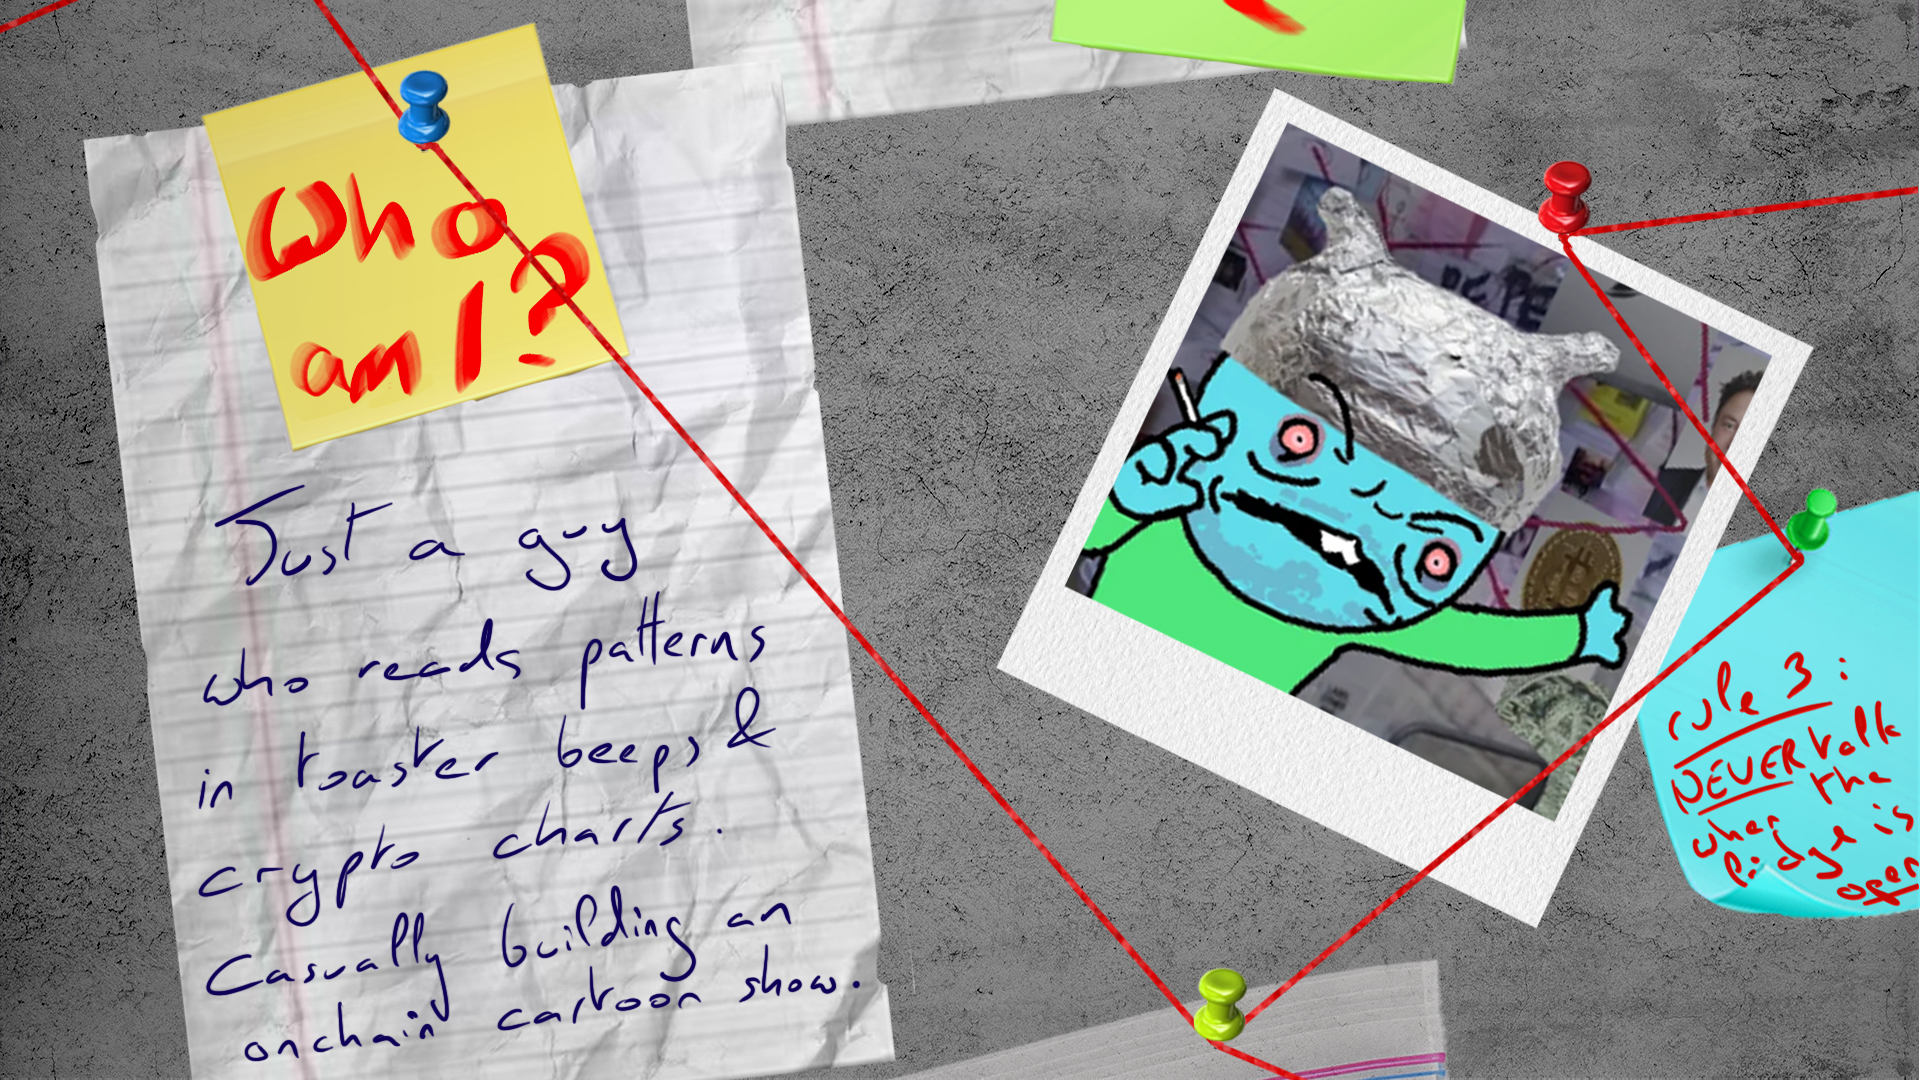 Who
am I?
Just a guy
who reads patterns
in toaster beeps &
crypto charts.
Casually building an
onchain cartoon show.
PEPE
rule 3:
NEVER talk
when the
fridge is
open